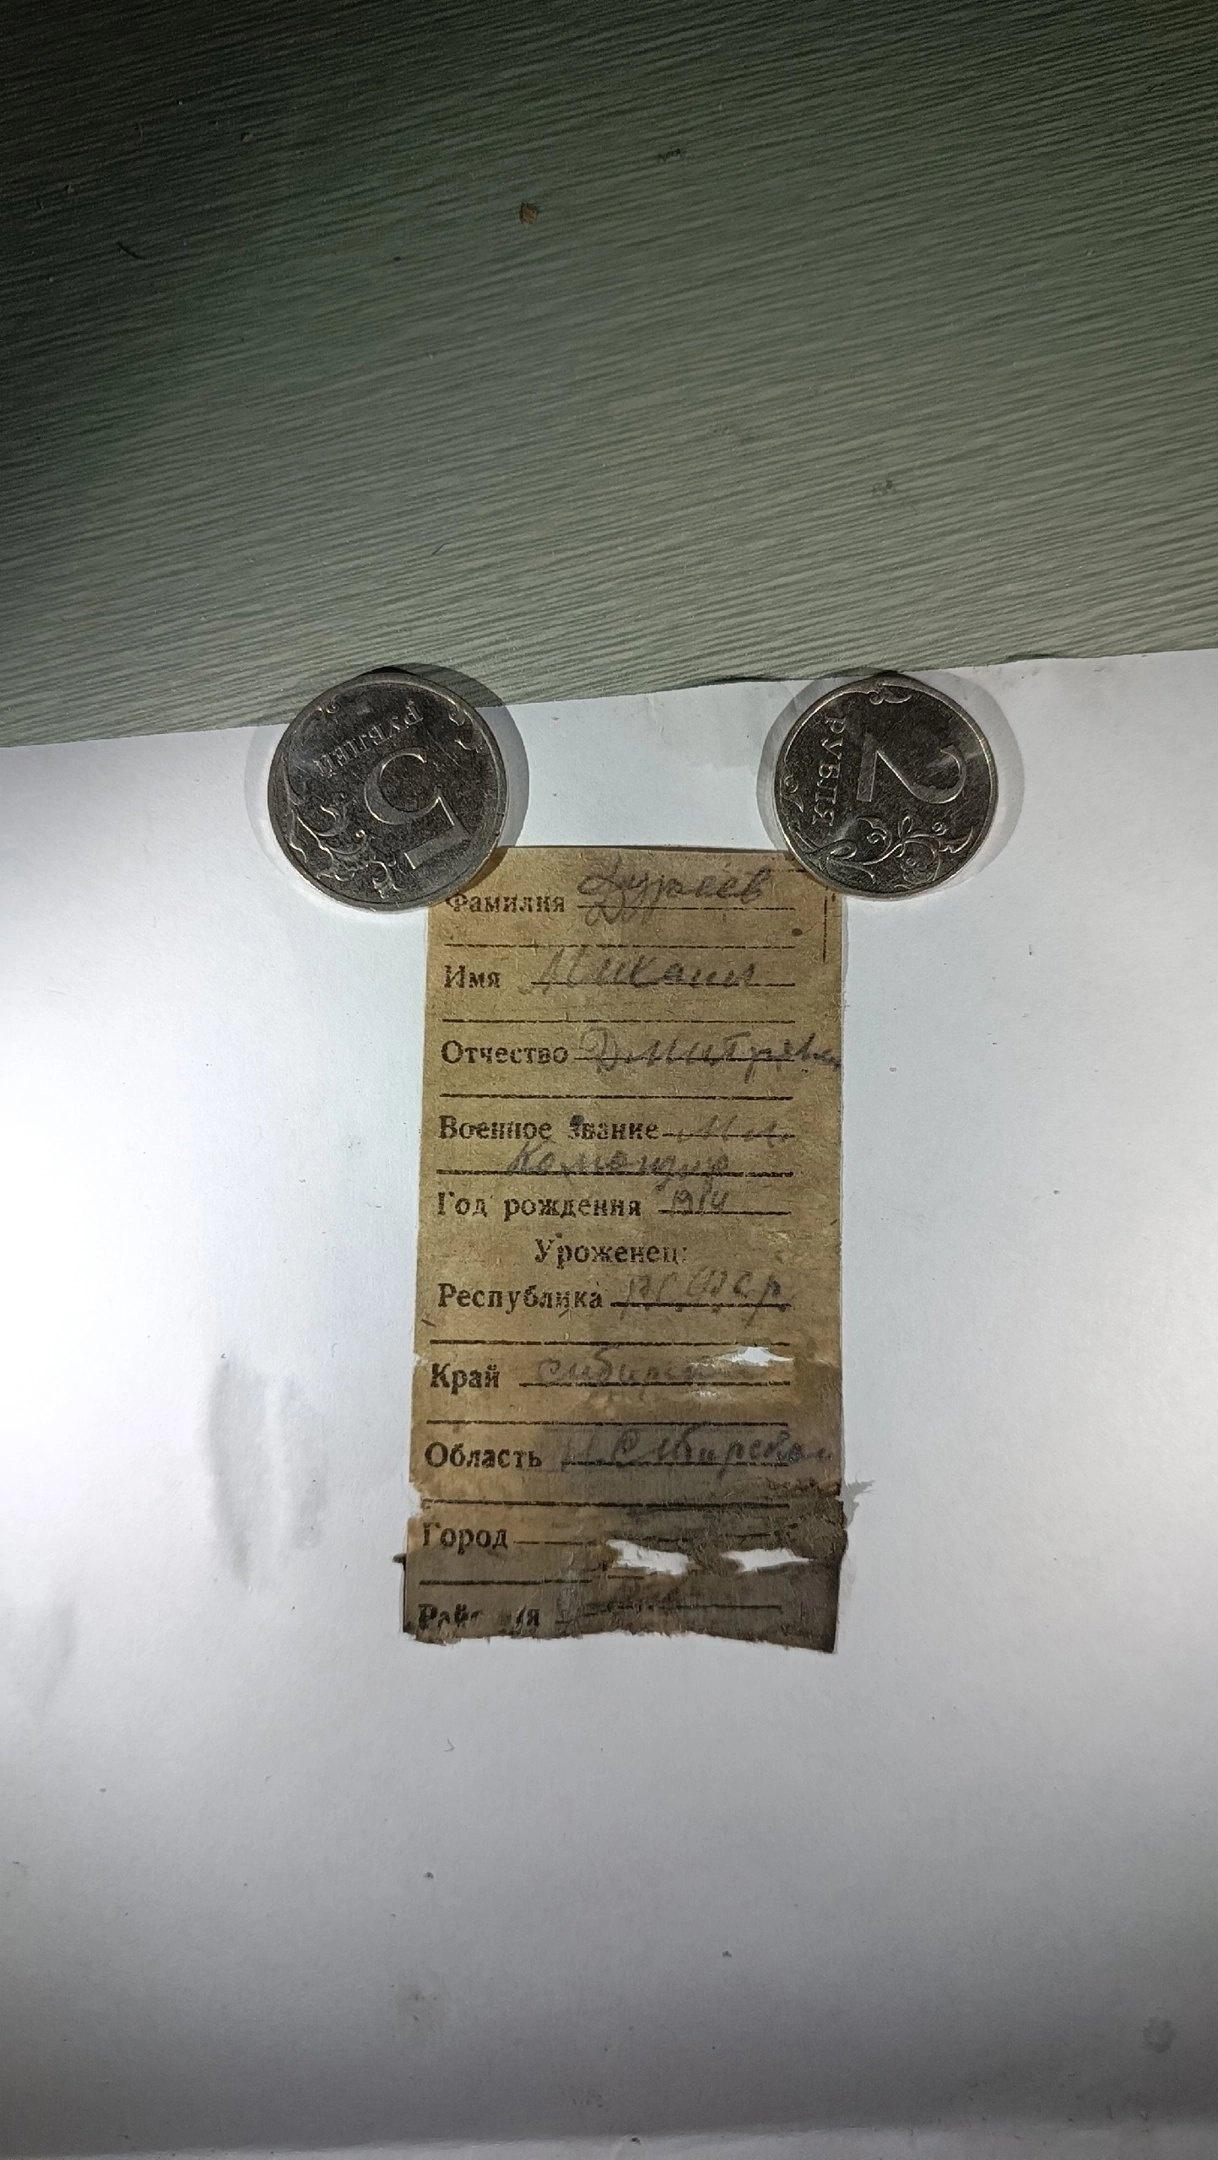 5
РУБЛЕЙ
2
РУБЛЯ
Фамилия
Имя Михаил
Отчество Дмитревич
Военное звание Мл.
Командир
Год рождения 1914
Уроженец:
Республика РСФСР
Край Сибирский
Область Н. Сибирская
Город